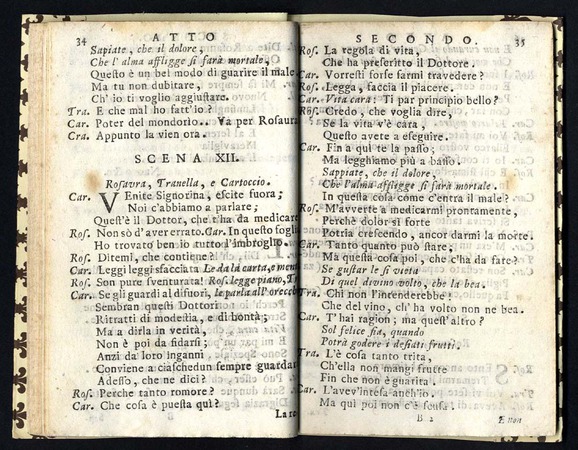 34 ATTO
Sapiate, che il dolore,
Che l'alma affligge si farà mortale,
Questo è un bel modo di guarire il male
Ma tu non dubitare,
Ch'io ti voglio aggiustare.
Tra. E che mal ho fatt'io?
Car. Poter del mondorlo.. Va per Rosaura
Cra. Appunto la vien ora.
SCENA XII.
Rosaura, Tranella, e Cartoccio.
Car. VEnite Signorina, escite fuora;
Noi c'abbiamo a parlare;
Quest'è il Dottor, che t'ha da medicare
Ros. Non sò d'aver errato. Car. In questo fogli
Ho trovato ben io tutto l'imbroglio.
Ros. Ditemi, che contiene?
Car. Leggi leggi sfacciata Le dà la carta, e
Ros. Son pure sventurata! Ros. legge piano,
Car. Se gli guardi al difuori, le parla all'orecch
Sembran questi Dottori
Ritratti di modestia, e di bontà;
Ma a dirla in verità,
Non è poi da fidarsi;
Anzi da loro inganni
Conviene a ciaschedun sempre guardar
Adesso, che ne dici?
Ros. Perche tanto romore?
Car. Che cosa è questa quì?
La re
SECONDO. 35
Ros. La regola di vita,
Che ha preseritto il Dottore.
Car. Vorresti forse farmi travedere?
Ros. Legga, faccia il piacere.
Car. Vita cara: Ti par principio bello?
Ros. Credo, che voglia dire,
Se la vita v'è cara,
Questo avete a eseguire.
Car. Fin a quì te la passo;
Ma legghiamo più a basso.
Sappiate, che il dolore,
Che l'alma affligge si farà mortale.
In questa cosa come c'entra il male?
Ros. M'avverte a medicarmi prontamente,
Perchè dolor sì forte
Potria crescendo, ancor darmi la morte.
Car. Tanto quanto può stare;
Ma questa cosa poi, che c'ha da fare?
Se gustar le si vieta
Di quel divino volto, che la bea.
Tra. Chi non l'intenderebbe!
Che del vino, ch' ha volto non ne bea.
Car. T'hai ragion; ma quest'altro?
Sol felice sia, quando
Potrà godere i desiati frutti.
Tra. L'è cosa tanto trita,
Ch'ella non mangi frutte
Fin che non è guarita.
Car. L'avev'intesa anch'io.
Ma quì poi non c'è scusa:
B 2 E non